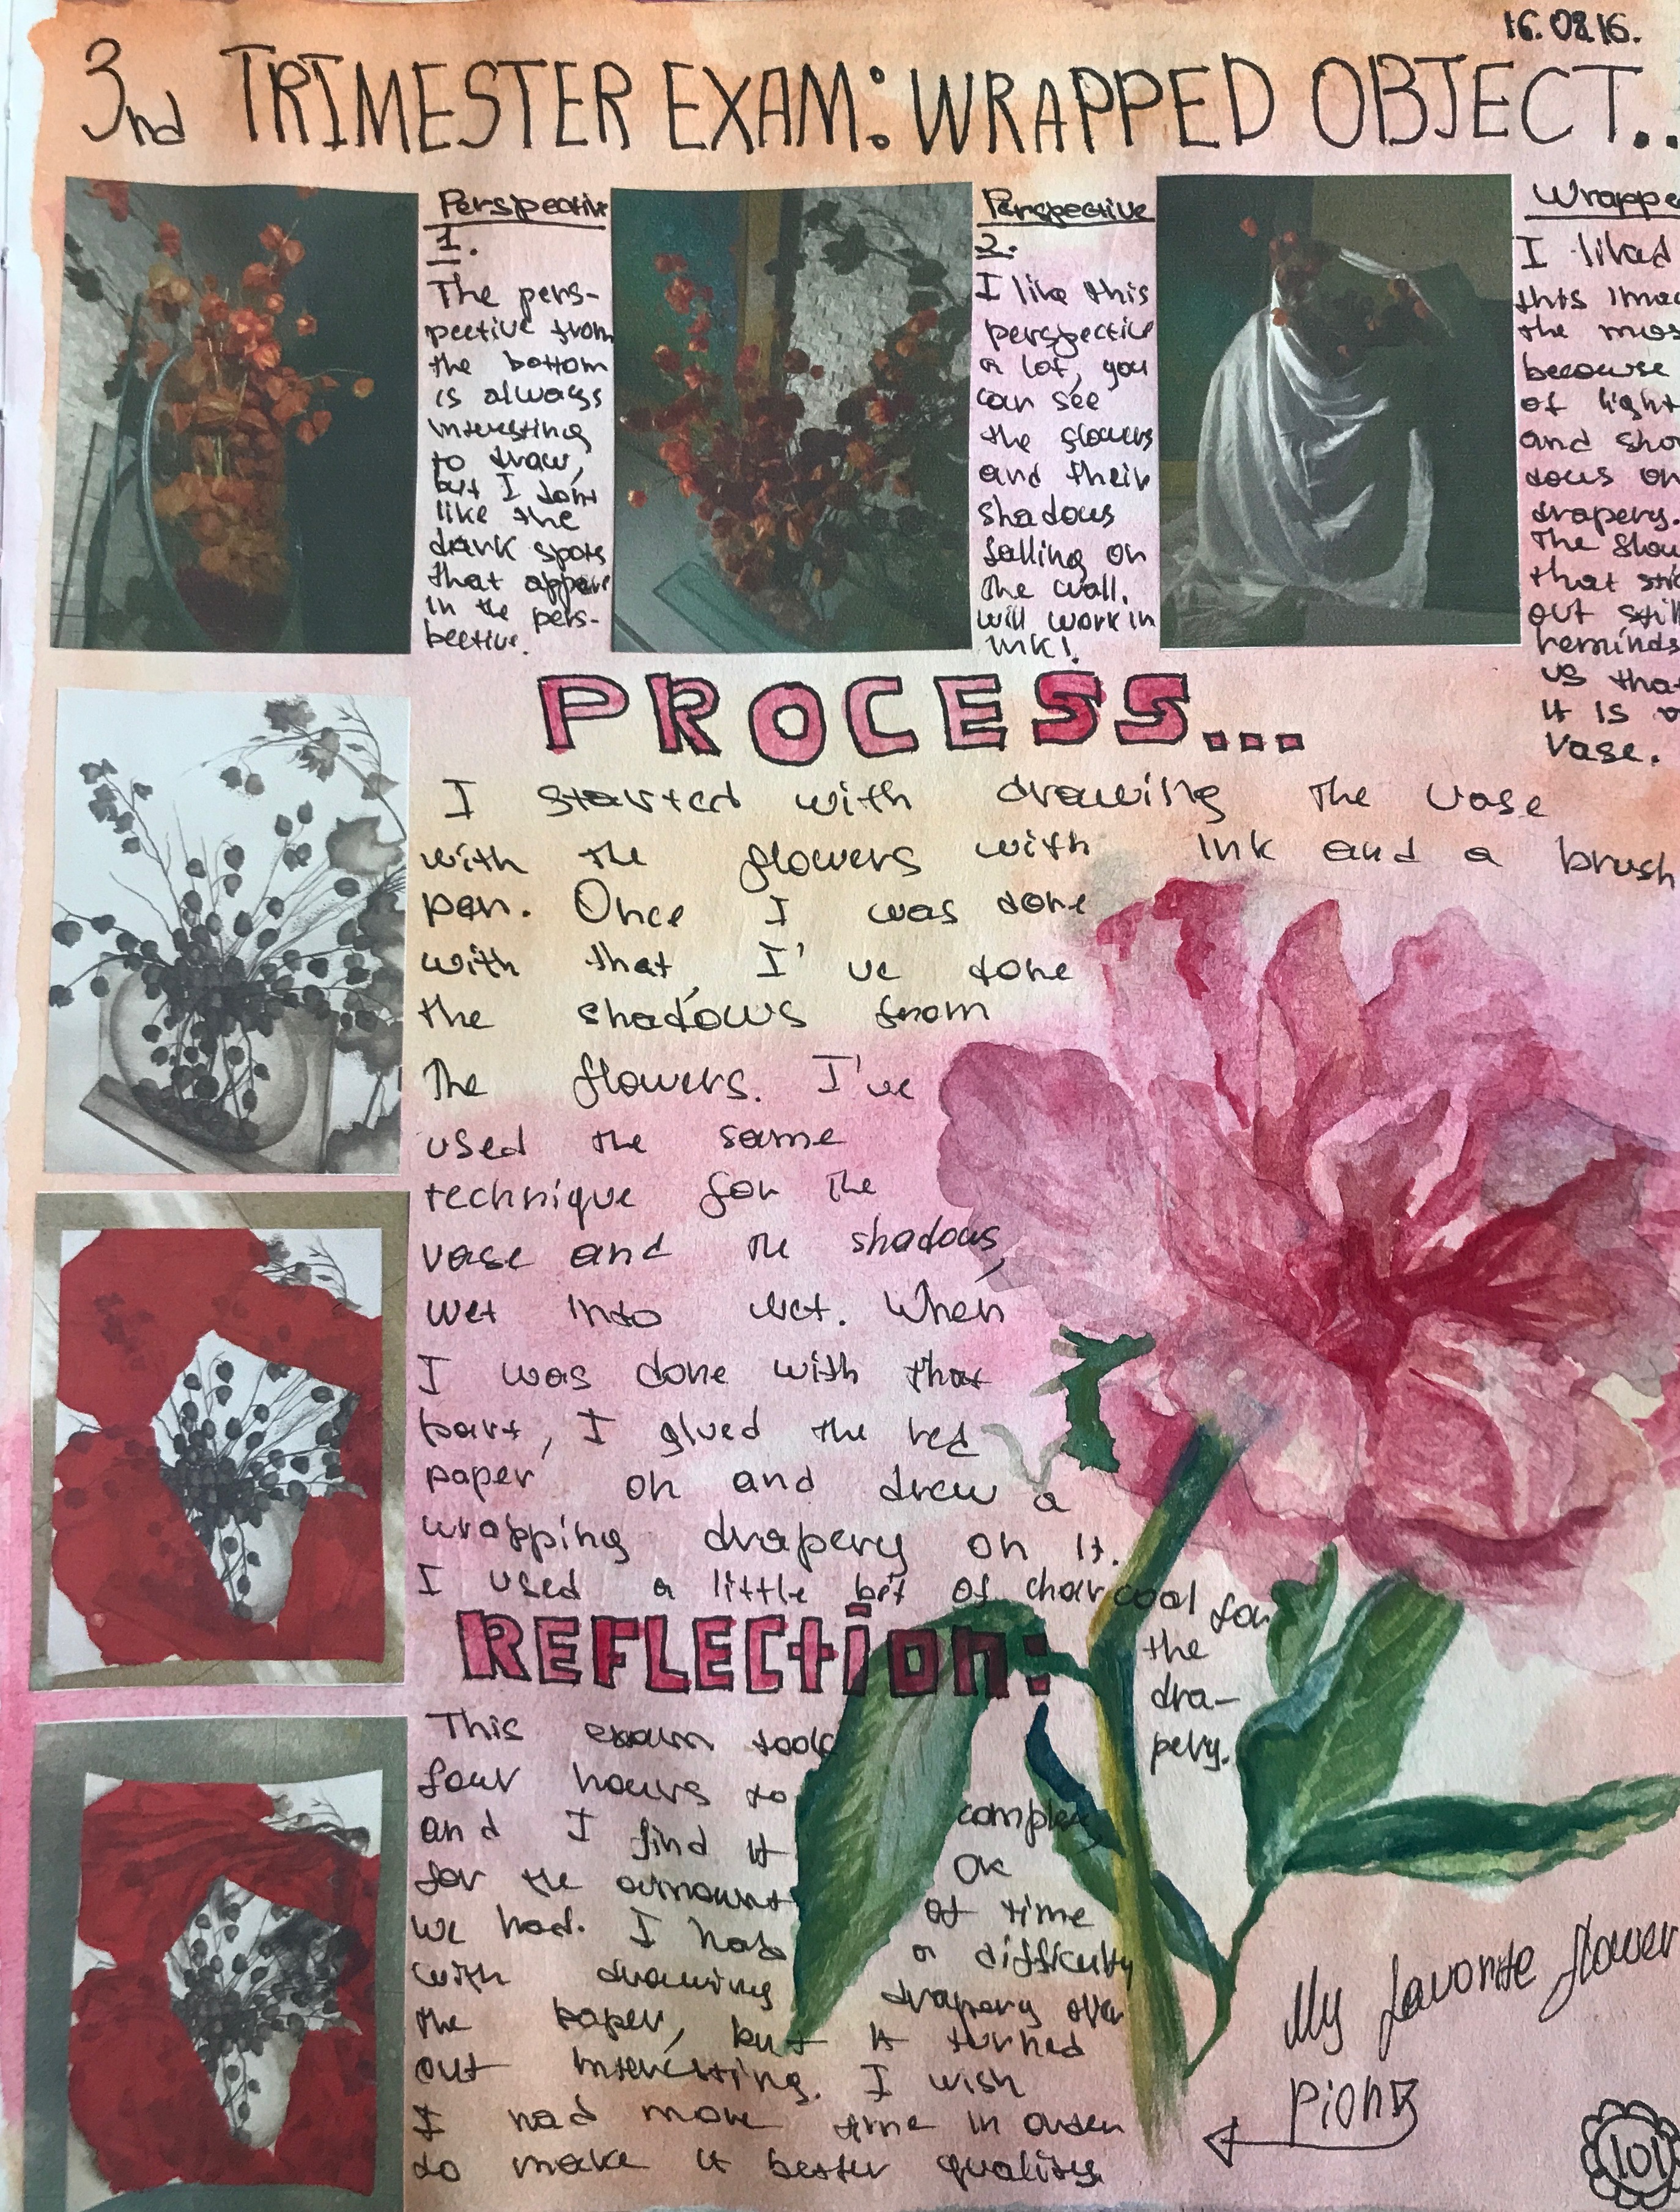 16.02.16.
3nd TRIMESTER EXAM: WRAPPED OBJECT...
Perspective
1.
The pers-
pective from
the bottom
is always
interesting
to draw,
but I don't
like the
dark spots
that appear
in the pers-
pective.
Perspective
2.
I like this
perspective
a lot, you
can see
the flowers
and their
shadows
falling on
the wall.
will work in
ink!
Wrappe
I liked
this imag
the mos
becouse
of light
and sha
dows on
drapery.
The flow
that stic
out still
reminds
us that
it is a
vase.
PROCESS...
I started with drawing the vase
with the flowers with ink and a brush
pen. Once I was done
with that, I've done
the shadows from
the flowers. I've
used the same
technique for the
vase and the shadows,
wet into wet. When
I was done with that
part, I glued the red
paper on and drew a
wrapping drapery on it.
I used a little bit of charcoal for
the
dra-
pery.
REFLECtion:
This exam took
four hours to complex
and I find it ok
for the amount of time
we had. I had a difficulty
with drawing drapery over
the paper, but it turned
out interesting. I wish
I had more time in order
to make it better quality.
My favorite flower
pions
101